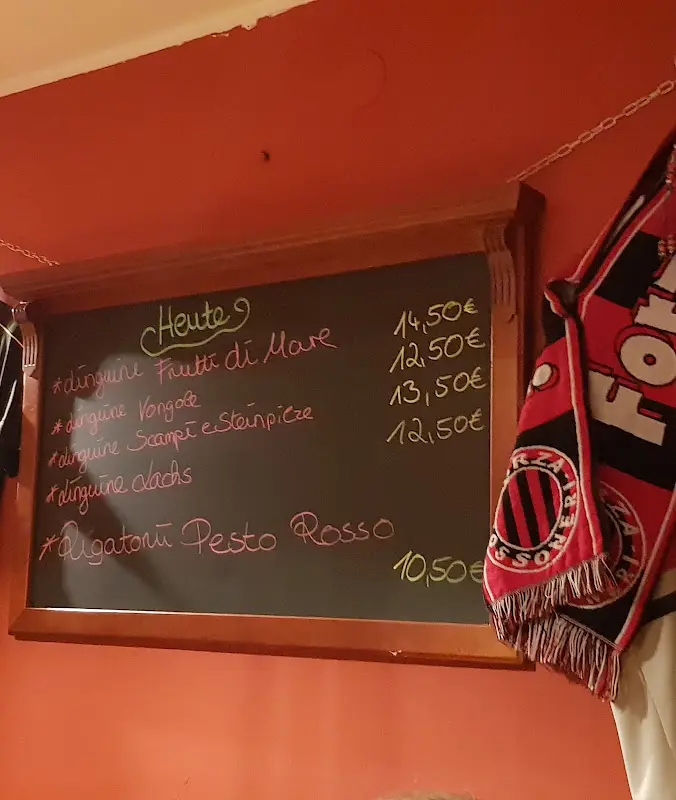 Heute
*Linguine Frutti di Mare 14,50€
*Linguine Vongole 12,50€
*Linguine Scampi e Steinpilze 13,50€
*Linguine Lachs 12,50€
*Rigatoni Pesto Rosso
10,50€
FORZA
ROSSONERI